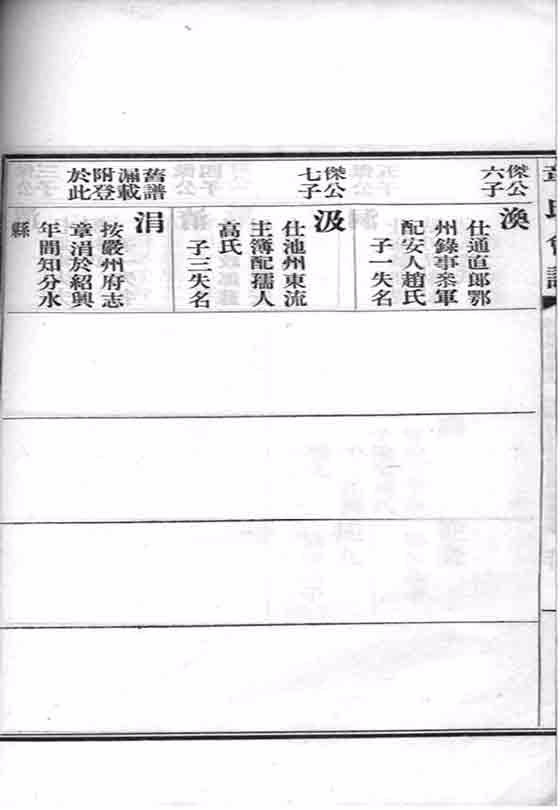 章氏會譜
傑公
六子
渙
仕通直郎鄂
州錄事叅軍
配安人趙氏
子一失名
傑公
七子
汲
仕池州東流
主簿配孺人
高氏
子三失名
舊譜
漏載
附登
於此
涓
按嚴州府志
章涓於紹興
年間知分水
縣